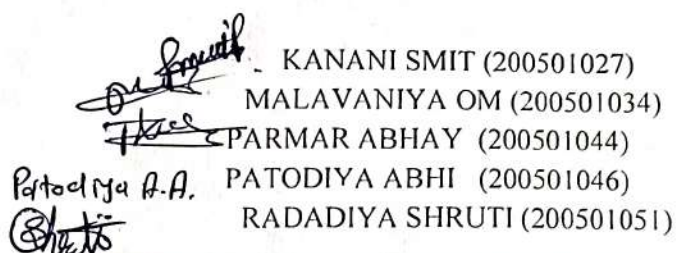 KANANI SMIT (200501027)
MALAVANIYA OM (200501034)
PARMAR ABHAY (200501044)
Patodiya A.A. PATODIYA ABHI (200501046)
RADADIYA SHRUTI (200501051)